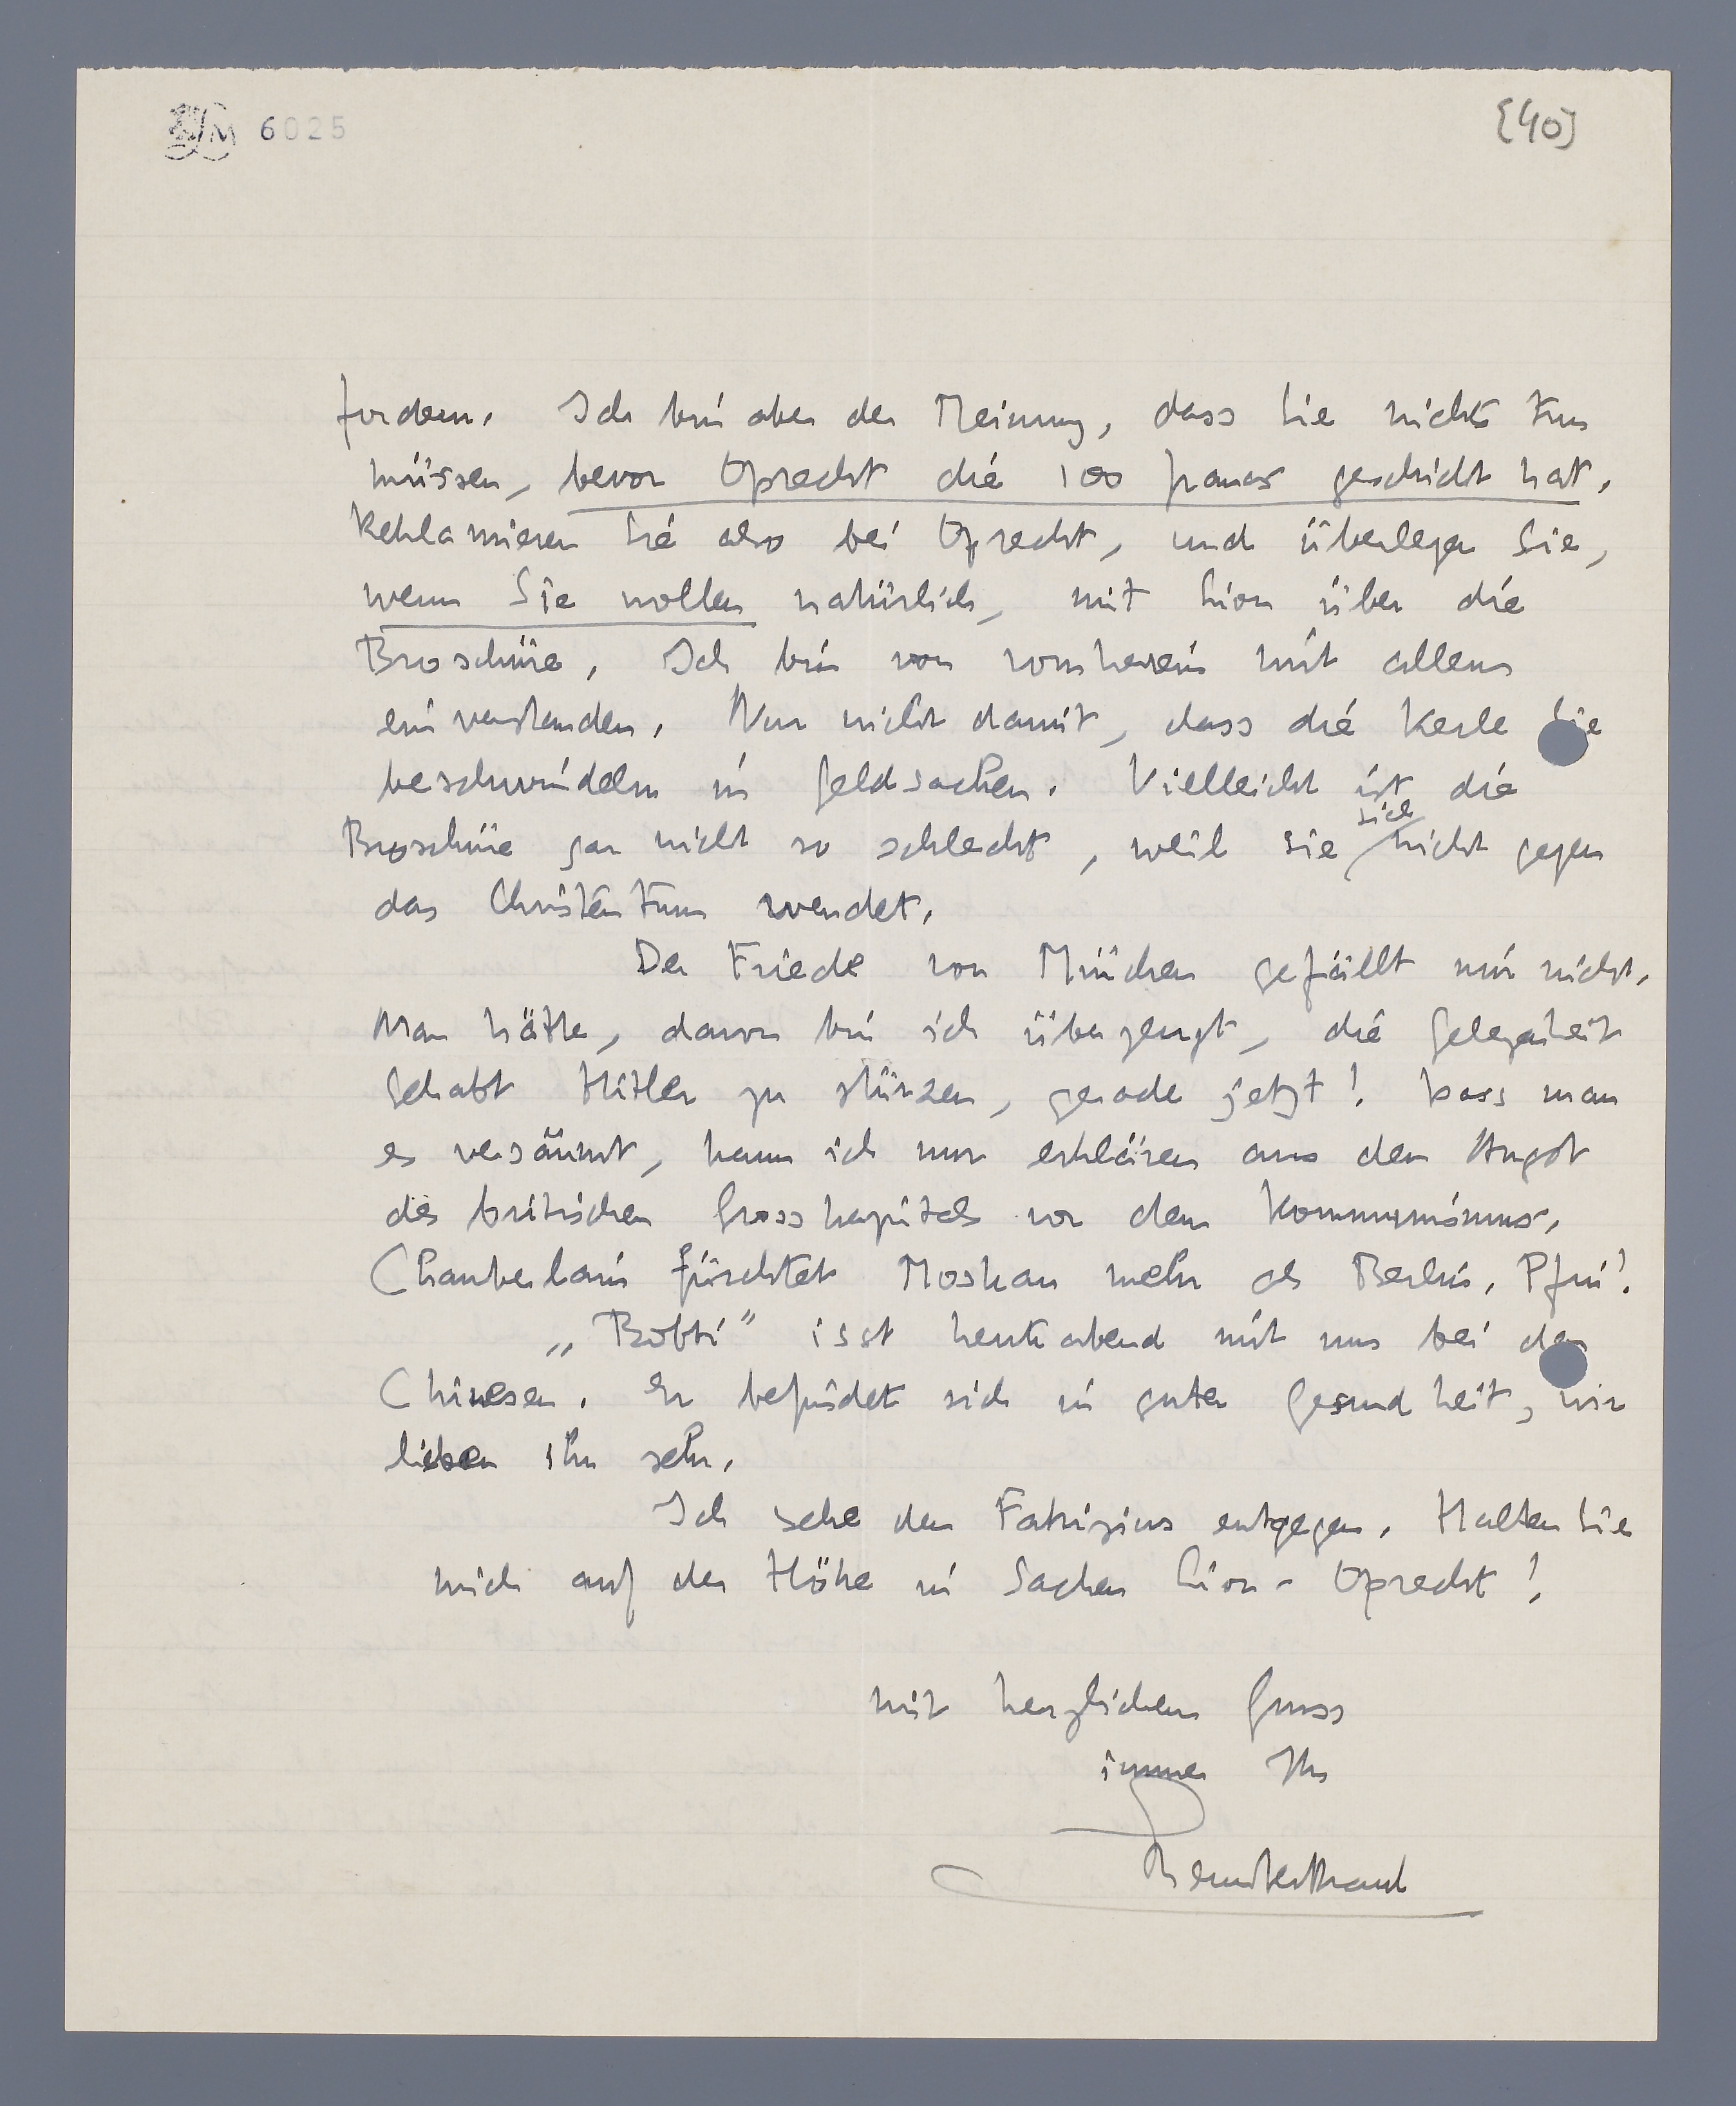 6025
[40]
fordern. Ich bin aber der Meinung, dass Sie nichts tun
müssen, bevor Oprecht die 100 francs geschickt hat.
Reklamieren Sie also bei Oprecht, und überlegen Sie,
wenn Sie wollen natürlich, mit Lion über die
Broschüre. Ich bin von vornherein mit allem
einverstanden. Nur nicht damit, dass die Kerle Sie
beschwindeln in Geldsachen. Vielleicht ist die
Broschüre gar nicht so schlecht, weil sie sich nicht gegen
das Christentum wendet.
Der Friede von München gefällt mir nicht.
Man hätte, davon bin ich überzeugt, die Gelegenheit
gehabt Hitler zu stürzen, gerade jetzt! Dass man
es versäumt, kann ich nur erklären aus der Angst
des britischen Grosskapitals vor dem Kommunismus.
Chamberlain fürchtet Moskau mehr als Berlin. Pfui!
„Bobbi" isst heute abend mit uns bei den
Chinesen. Er befindet sich in guter Gesundheit, wir
lieben ihn sehr.
Ich sehe dem Fabrizius entgegen. Halten Sie
mich auf der Höhe in Sachen Lion - Oprecht!
mit herzlichem Gruss
immer Ihr